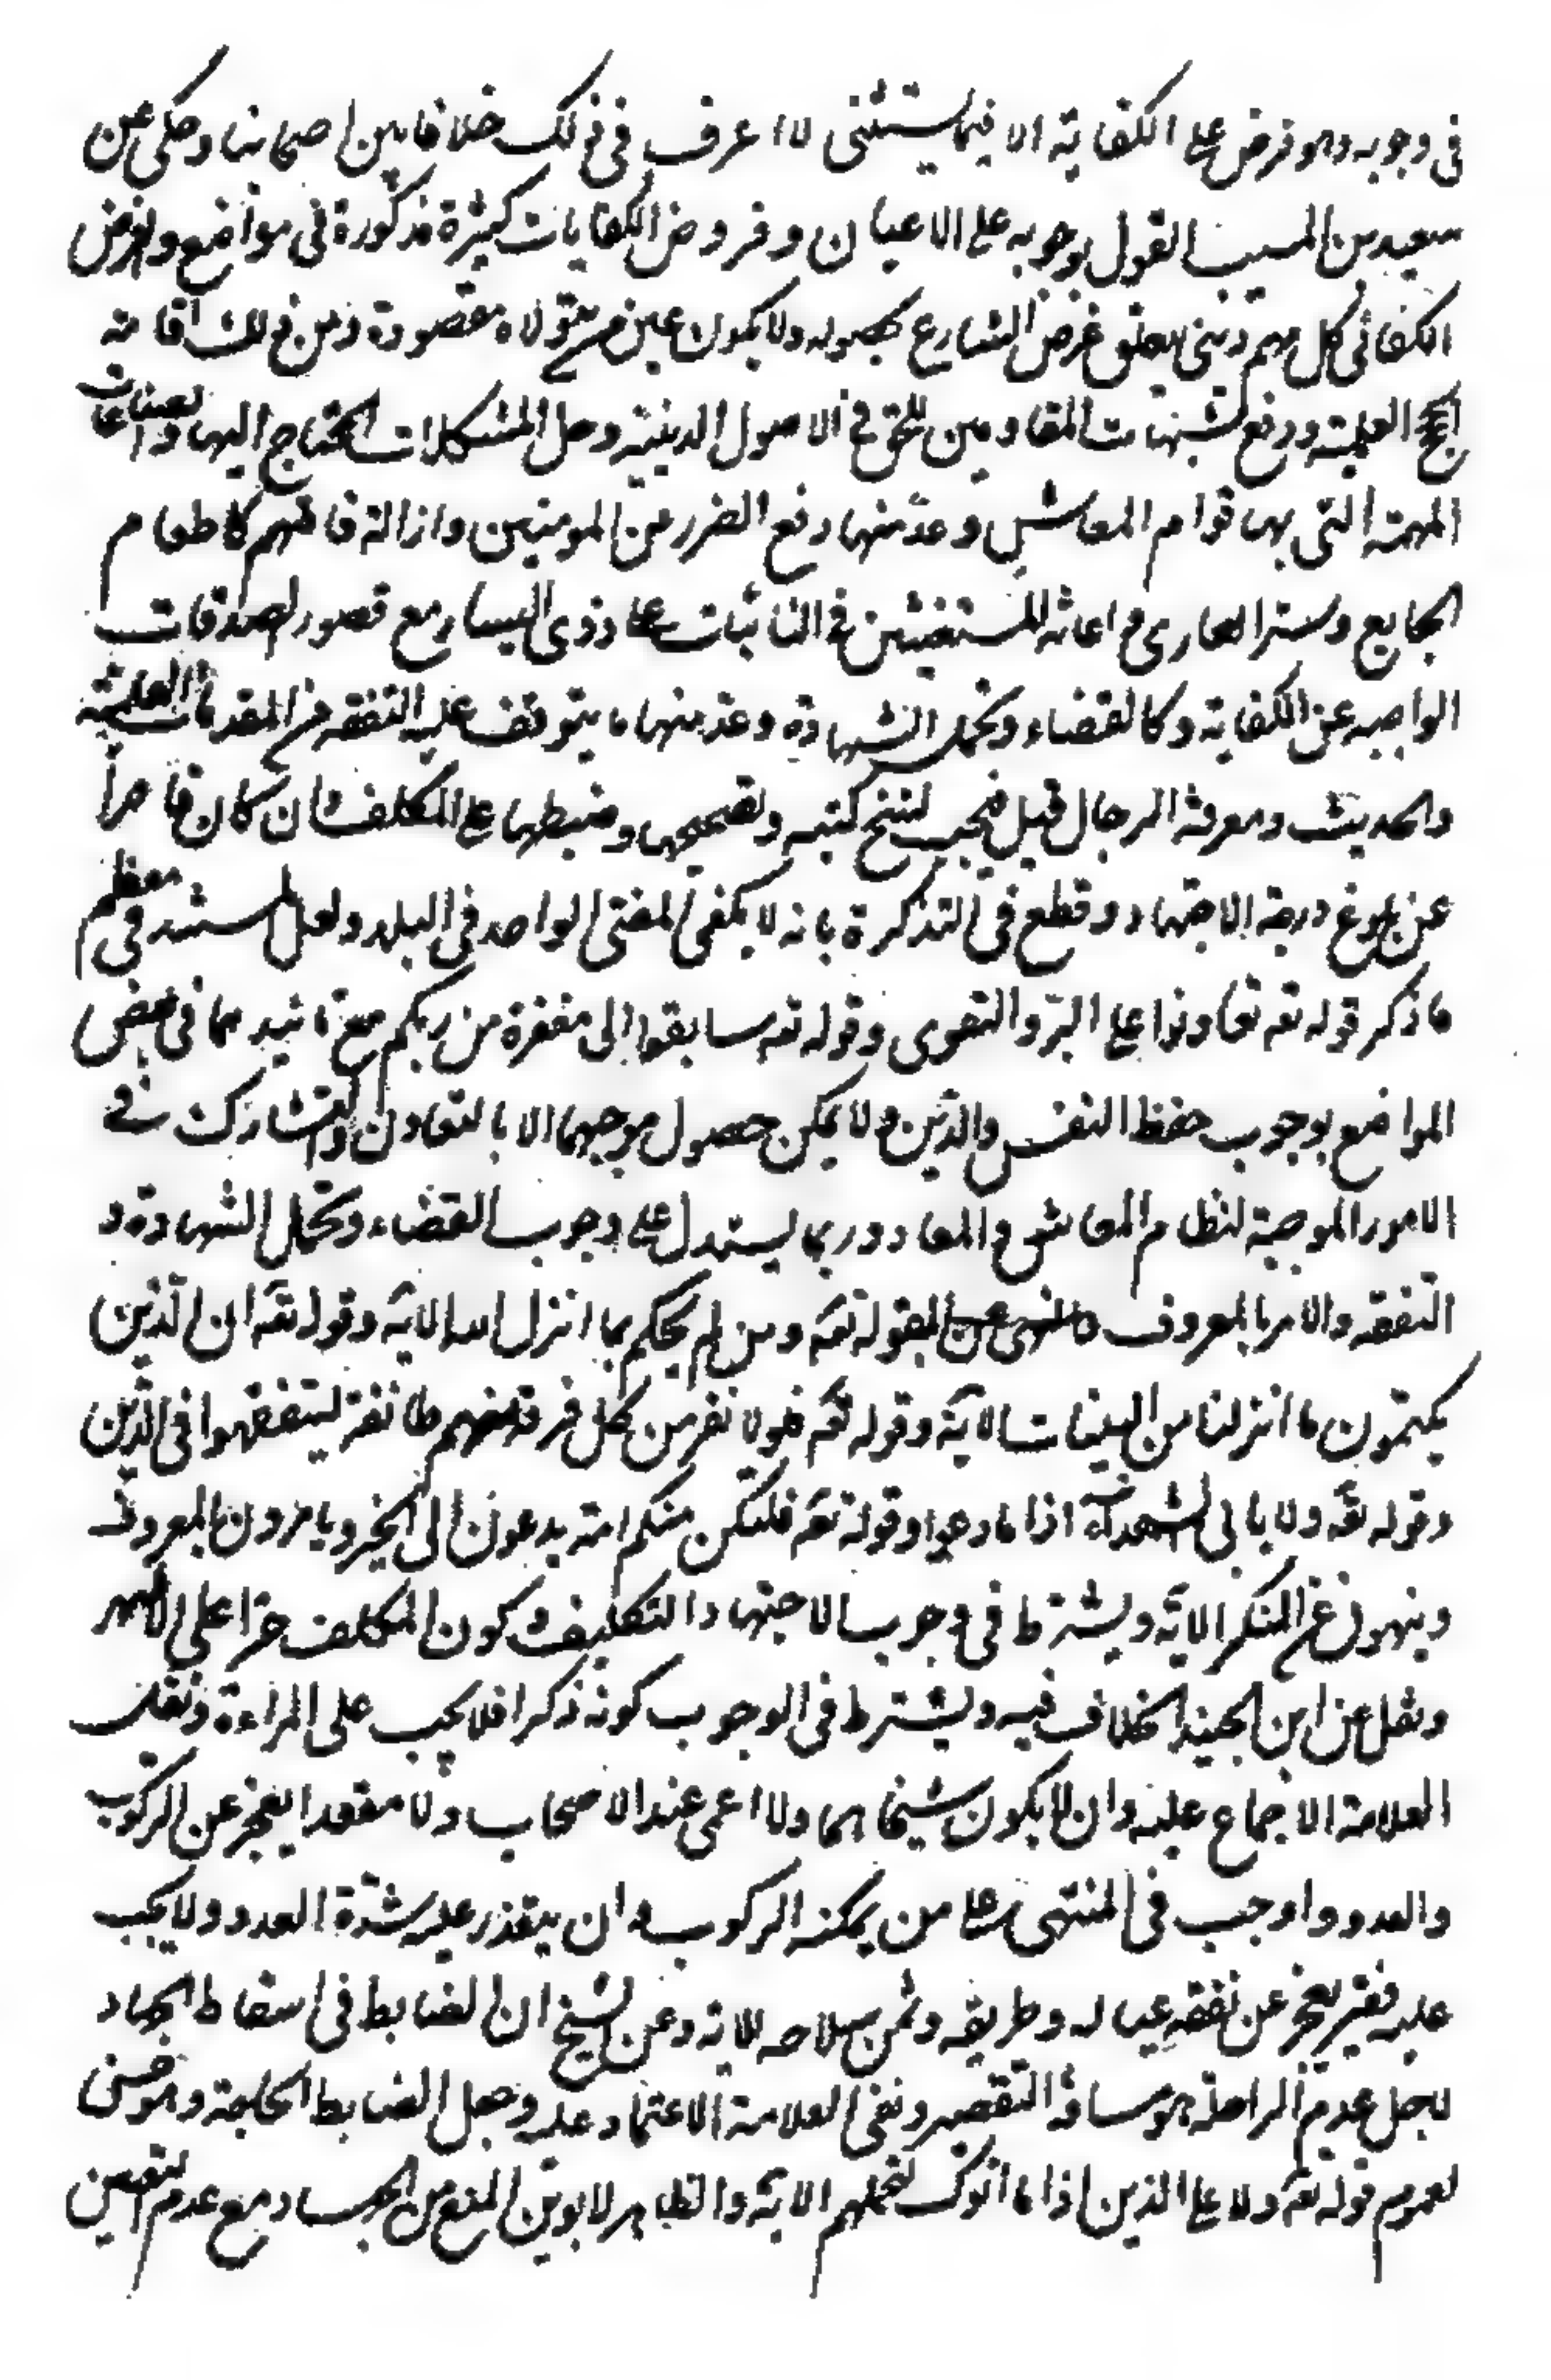 فى وجوبه وهو فرض على الكفاية الا فيما يستثنى لا اعرف فى ذلك خلافا بين اصحابنا وحكى عن
سعيد بن المسيب القول بوجوبه على الاعيان وفروض الكفايات كثيرة مذكورة فى مواضع والفرض
الكفائى كل مهم دينى يتعلق غرض الشارع بحصوله ولا يكون عين من يتولاه مقصودة ومن ذلك اقامة
الحجج العلمية ودفع الشبهات المقاومين للحق فى الاصول الدينية وحل المشكلات المحتاج اليها والصناعات
المهمة التى بها قوام المعاش وعد منها دفع الضرر عن المومنين وازالة فاقتهم كاطعام
الجايع وستر العارى واعاثة المستغيثين فى النائبات على ذوى اليسار مع قصور الصدقات
الواجبه عن الكفاية وكالقضاء وتحمل الشهادة وعد منها ما يتوقف عليه التفقه من المقدمات العلمية
والحديث ومعرفة الرجال قيل فيجب نسخ كتبه وتصحيحها وضبطها على المكلف وان كان قاصراً
عن بلوغ درجة الاجتهاد وقطع فى التذكرة بانه لا يكفى المفتى الواحد فى البلد ولعل المستند فى معظم
ما ذكر قوله تعه تعاونوا على البرّ والتقوى وقوله تعه سابقوا الى مغفرة من ربكم مع تائيد مما فى بعض
المواضع بوجوب حفظ النفس والدّين ولا يمكن حصول موجبهما الا بالتعاون والتشارك فى
الامور الموجبة لنظام المعاش والمعاد وربما يستدل على وجوب القضاء وتحمل الشهادة و
التفقه والامر بالمعروف والنهى عن بقوله تعه ومن لم يحكم بما انزل الله الاية وقوله تعه ان الذين
يكتمون ما انزلنا من البينات الاية وقوله تعه فلولا نفر من كل فرقة منهم طائفة ليتفقهوا فى الدّين
وقوله تعه ولا يابى الشهداء اذا ما دعوا وقوله تعه فلتكن منكم امة يدعون الى الخير ويامرون بالمعروف
وينهون عن المنكر الاية ويشترط فى وجوب الاجتهاد التكليف وكون المكلف حرّا على الاشهر
ونقل عن ابن الجنيد الخلاف فيه ويشترط فى الوجوب كونه ذكرا فلا يجب على المراءة ونقل
العلامة الاجماع عليه وان لا يكون شيخا هما ولا اعمى عند الاصحاب ولا مقعدا يعجز عن الركوب
والعدو واوجب فى المنتهى على من يمكنه الركوب وان يتعذر عليه شدّة العدو ولا يجب
عليه فقير يعجز عن نفقه عياله وطريقه وثمن سلاحه للاية وعن الشيخ ان الضابط فى اسقاط الجهاد
لاجل عدم الراحلة هو مسافة التقصير ونفى العلامة الاعتماد عليه وجعل الضابط الحاجة وهو حسن
لعموم قوله تعه ولا على الذين اذا ما اتوك لتحملهم الاية والظاهر لابوين المنع من الجهاد مع عدم التعيين